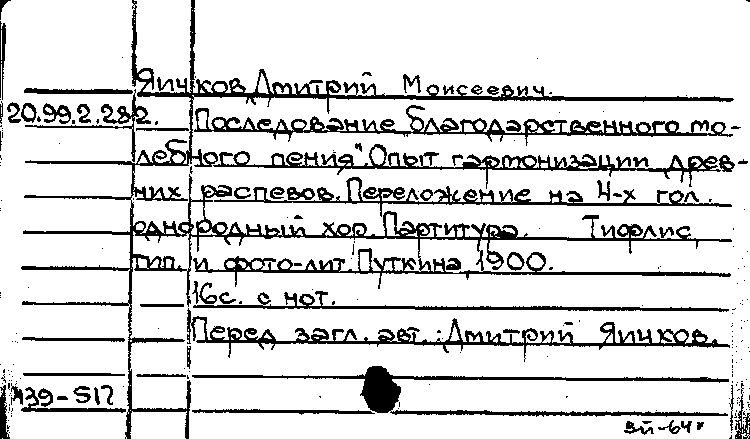 Яичков, Дмитрий Моисеевич.
20.99.2.282. Последование благодарственного мо-
лебного пения". Опыт гармонизации древ-
них распевов. Переложение на 4-х гол.
однородный хор. Партитура. Тифлис,
тип. и фото-лит. Путкина, 1900.
16с. с нот.
Перед загл. авт.: Дмитрий Яичков.
439-S17